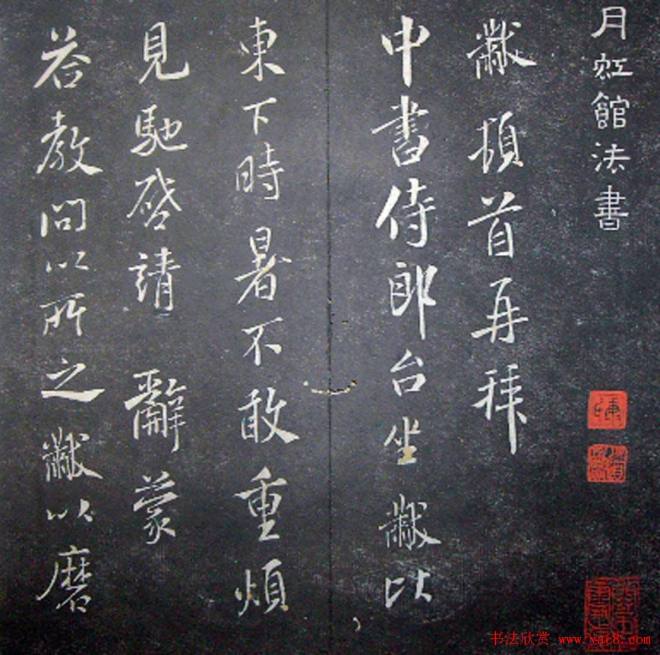 月虹館法書
黻頓首再拜
中書侍郎台坐黻比
東下時暑不敢重煩
見馳啓請 辭蒙
荅教問以所之黻以磨
书法欣赏 www.yac8.com